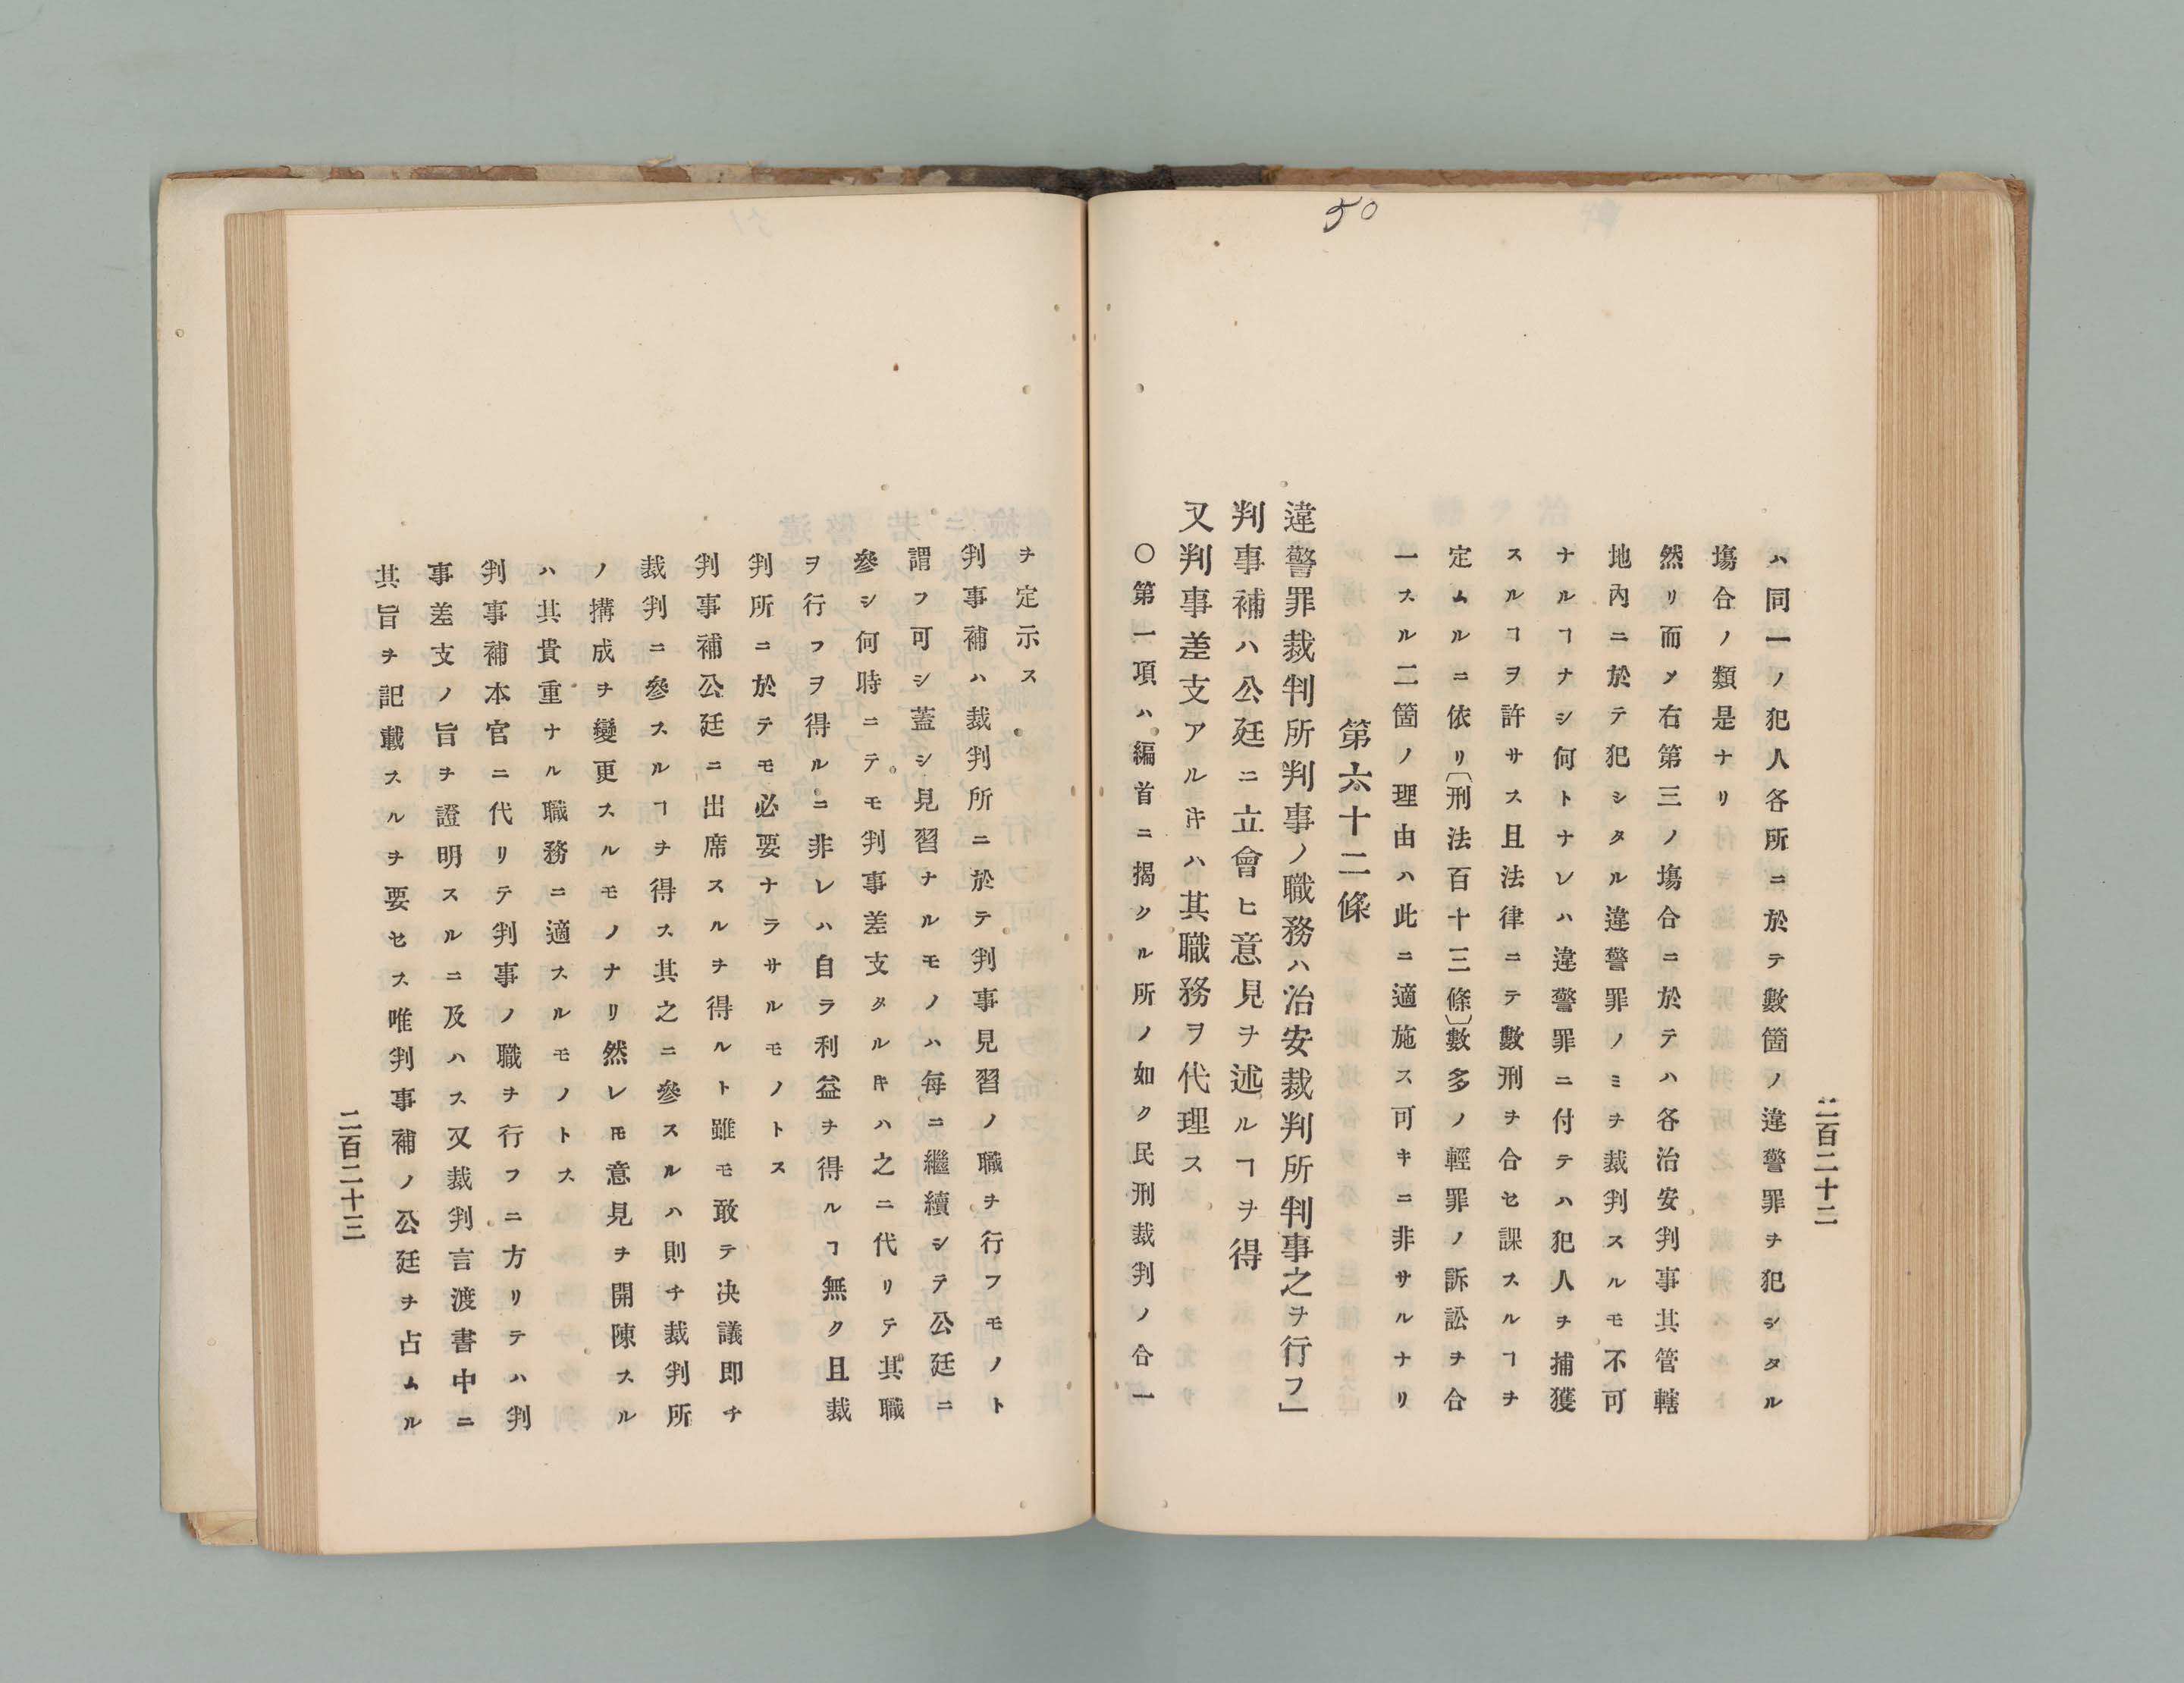 50
ハ同一ノ犯人各所ニ於テ數箇ノ違警罪ヲ犯シタル
塲合ノ類是ナリ
然リ而メ右第三ノ塲合ニ於テハ各治安判事其管轄
地內ニ於テ犯シタル違警罪ノミヲ裁判スルモ不可
ナルヿナシ何トナレハ違警罪ニ付テハ犯人ヲ捕獲
スルヿヲ許サス且法律ニテ數刑ヲ合セ課スルヿヲ
定ムルニ依リ〔刑法百十三條〕數多ノ輕罪ノ訴訟ヲ合
一スル二箇ノ理由ハ此ニ適施ス可キニ非サルナリ
第六十二條
違警罪裁判所判事ノ職務ハ治安裁判所判事之ヲ行フ」
判事補ハ公廷ニ立會ヒ意見ヲ述ルヿヲ得
又判事差支アルキハ其職務ヲ代理ス
〇第一項ハ編首ニ揭クル所ノ如ク民刑裁判ノ合一
二百二十二
ヲ定示ス
判事補ハ裁判所ニ於テ判事見習ノ職ヲ行フモノト
謂フ可シ蓋シ見習ナルモノハ每ニ繼續シテ公廷ニ
參シ何時ニテモ判事差支タルキハ之ニ代リテ其職
ヲ行フヲ得ルニ非レハ自ラ利益ヲ得ルヿ無ク且裁
判所ニ於テモ必要ナラサルモノトス
判事補公廷ニ出席スルヲ得ルト雖モ敢テ决議即チ
裁判ニ參スルヿヲ得ス其之ニ參スルハ則チ裁判所
ノ搆成ヲ變更スルモノナリ然レ𪜈意見ヲ開陳スル
ハ其貴重ナル職務ニ適スルモノトス
判事補本官ニ代リテ判事ノ職ヲ行フニ方リテハ判
事差支ノ旨ヲ證明スルニ及ハス又裁判言渡書中ニ
其旨ヲ記載スルヲ要セス唯判事補ノ公廷ヲ占ムル
二百二十三